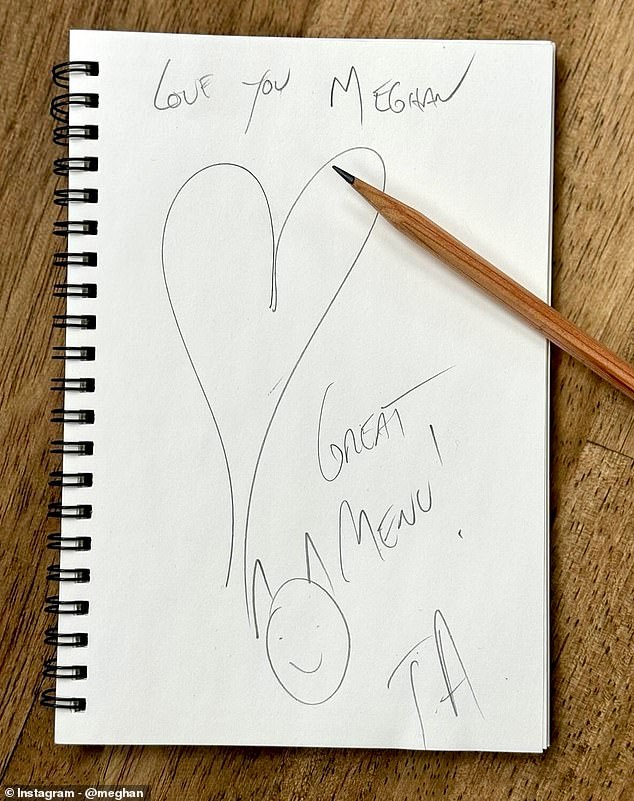 LOVE YOU MEGHAN
GREAT
MENU!
J.A
© Instagram - @meghan